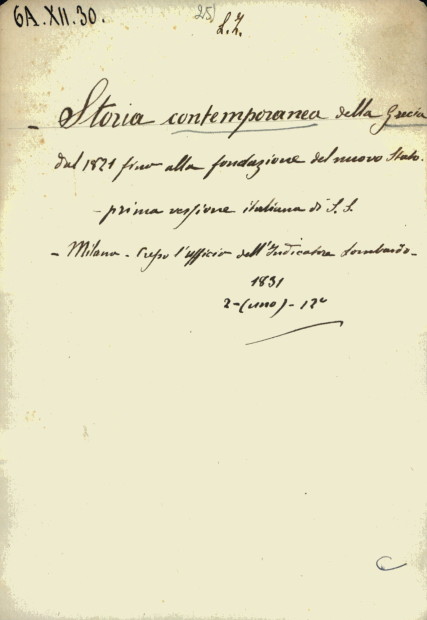 6A.XII.30.
25)
L.Z.
- Storia contemporanea della Grecia
dal 1821 fino alla fondazione del nuovo Stato.
- prima versione italiana di S. S.
- Milano - Presso l'ufficio dell'Indicatore Lombardo -
1831
2 - (uno) - 12°